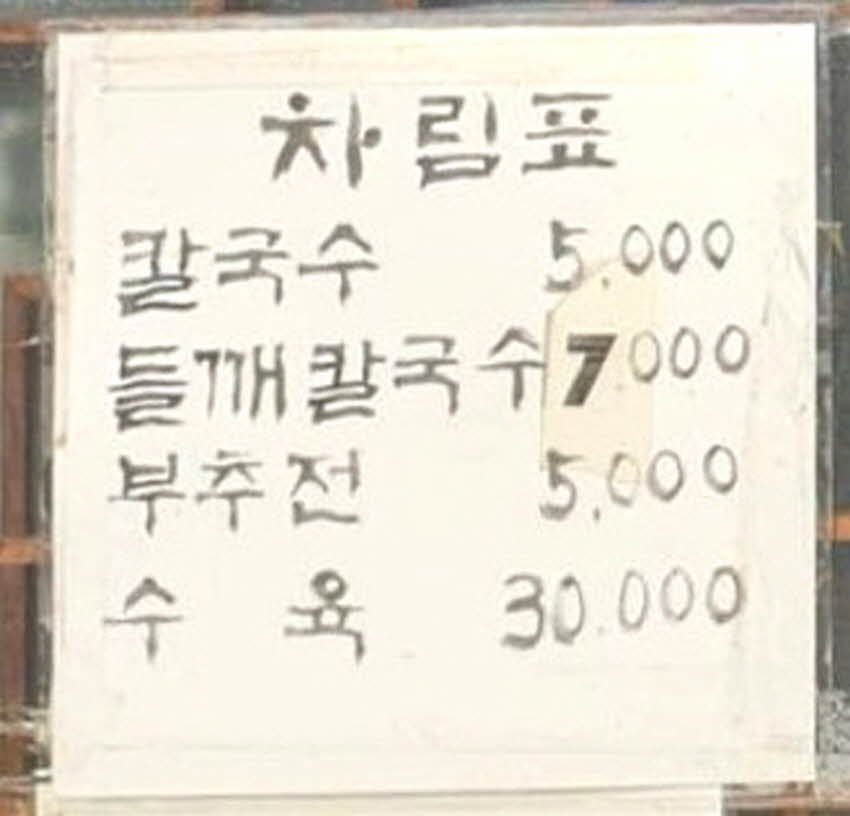 차림표
칼국수 5.000
들깨칼국수 7000
부추전 5.000
수육 30.000